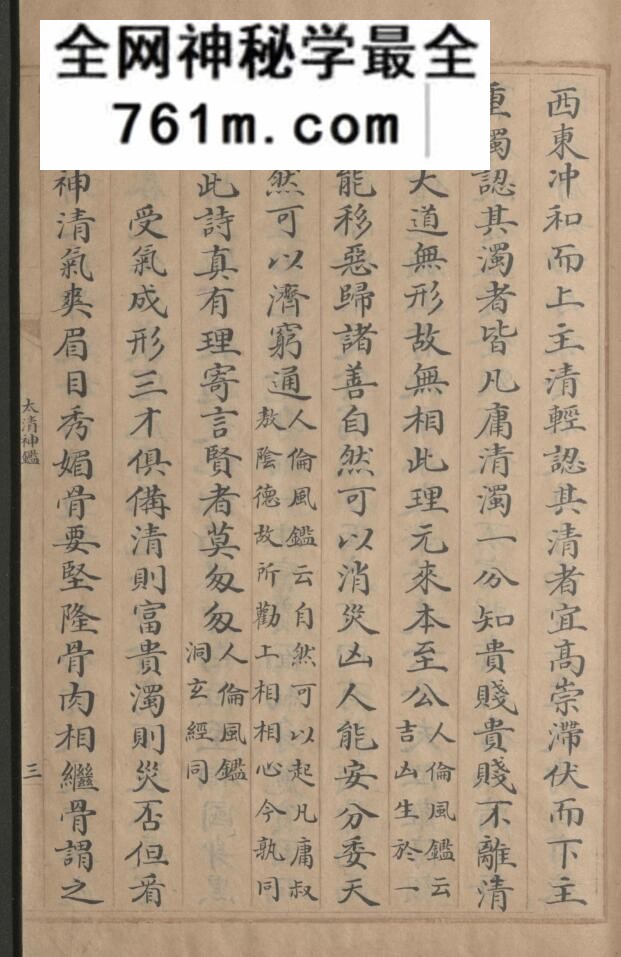 全网神秘学最全
761m.com
西東冲和而上主清輕認其清者宜高崇滯伏而下主
重濁認其濁者皆凡庸清濁一分知貴賤貴賤不離清
大道無形故無相此理元來本至公人倫風鑑云吉凶生於一
能移惡歸諸善自然可以消災凶人能安分委天
然可以濟窮通人倫風鑑云自然可以起凡庸叔敖陰德故所勸上相相心今孰同
此詩真有理寄言賢者莫匆匆人倫風鑑洞玄經同
受氣成形三才俱備清則富貴濁則災否但看
神清氣爽眉目秀媚骨要堅隆骨肉相繼骨謂之
太清神鑑
三